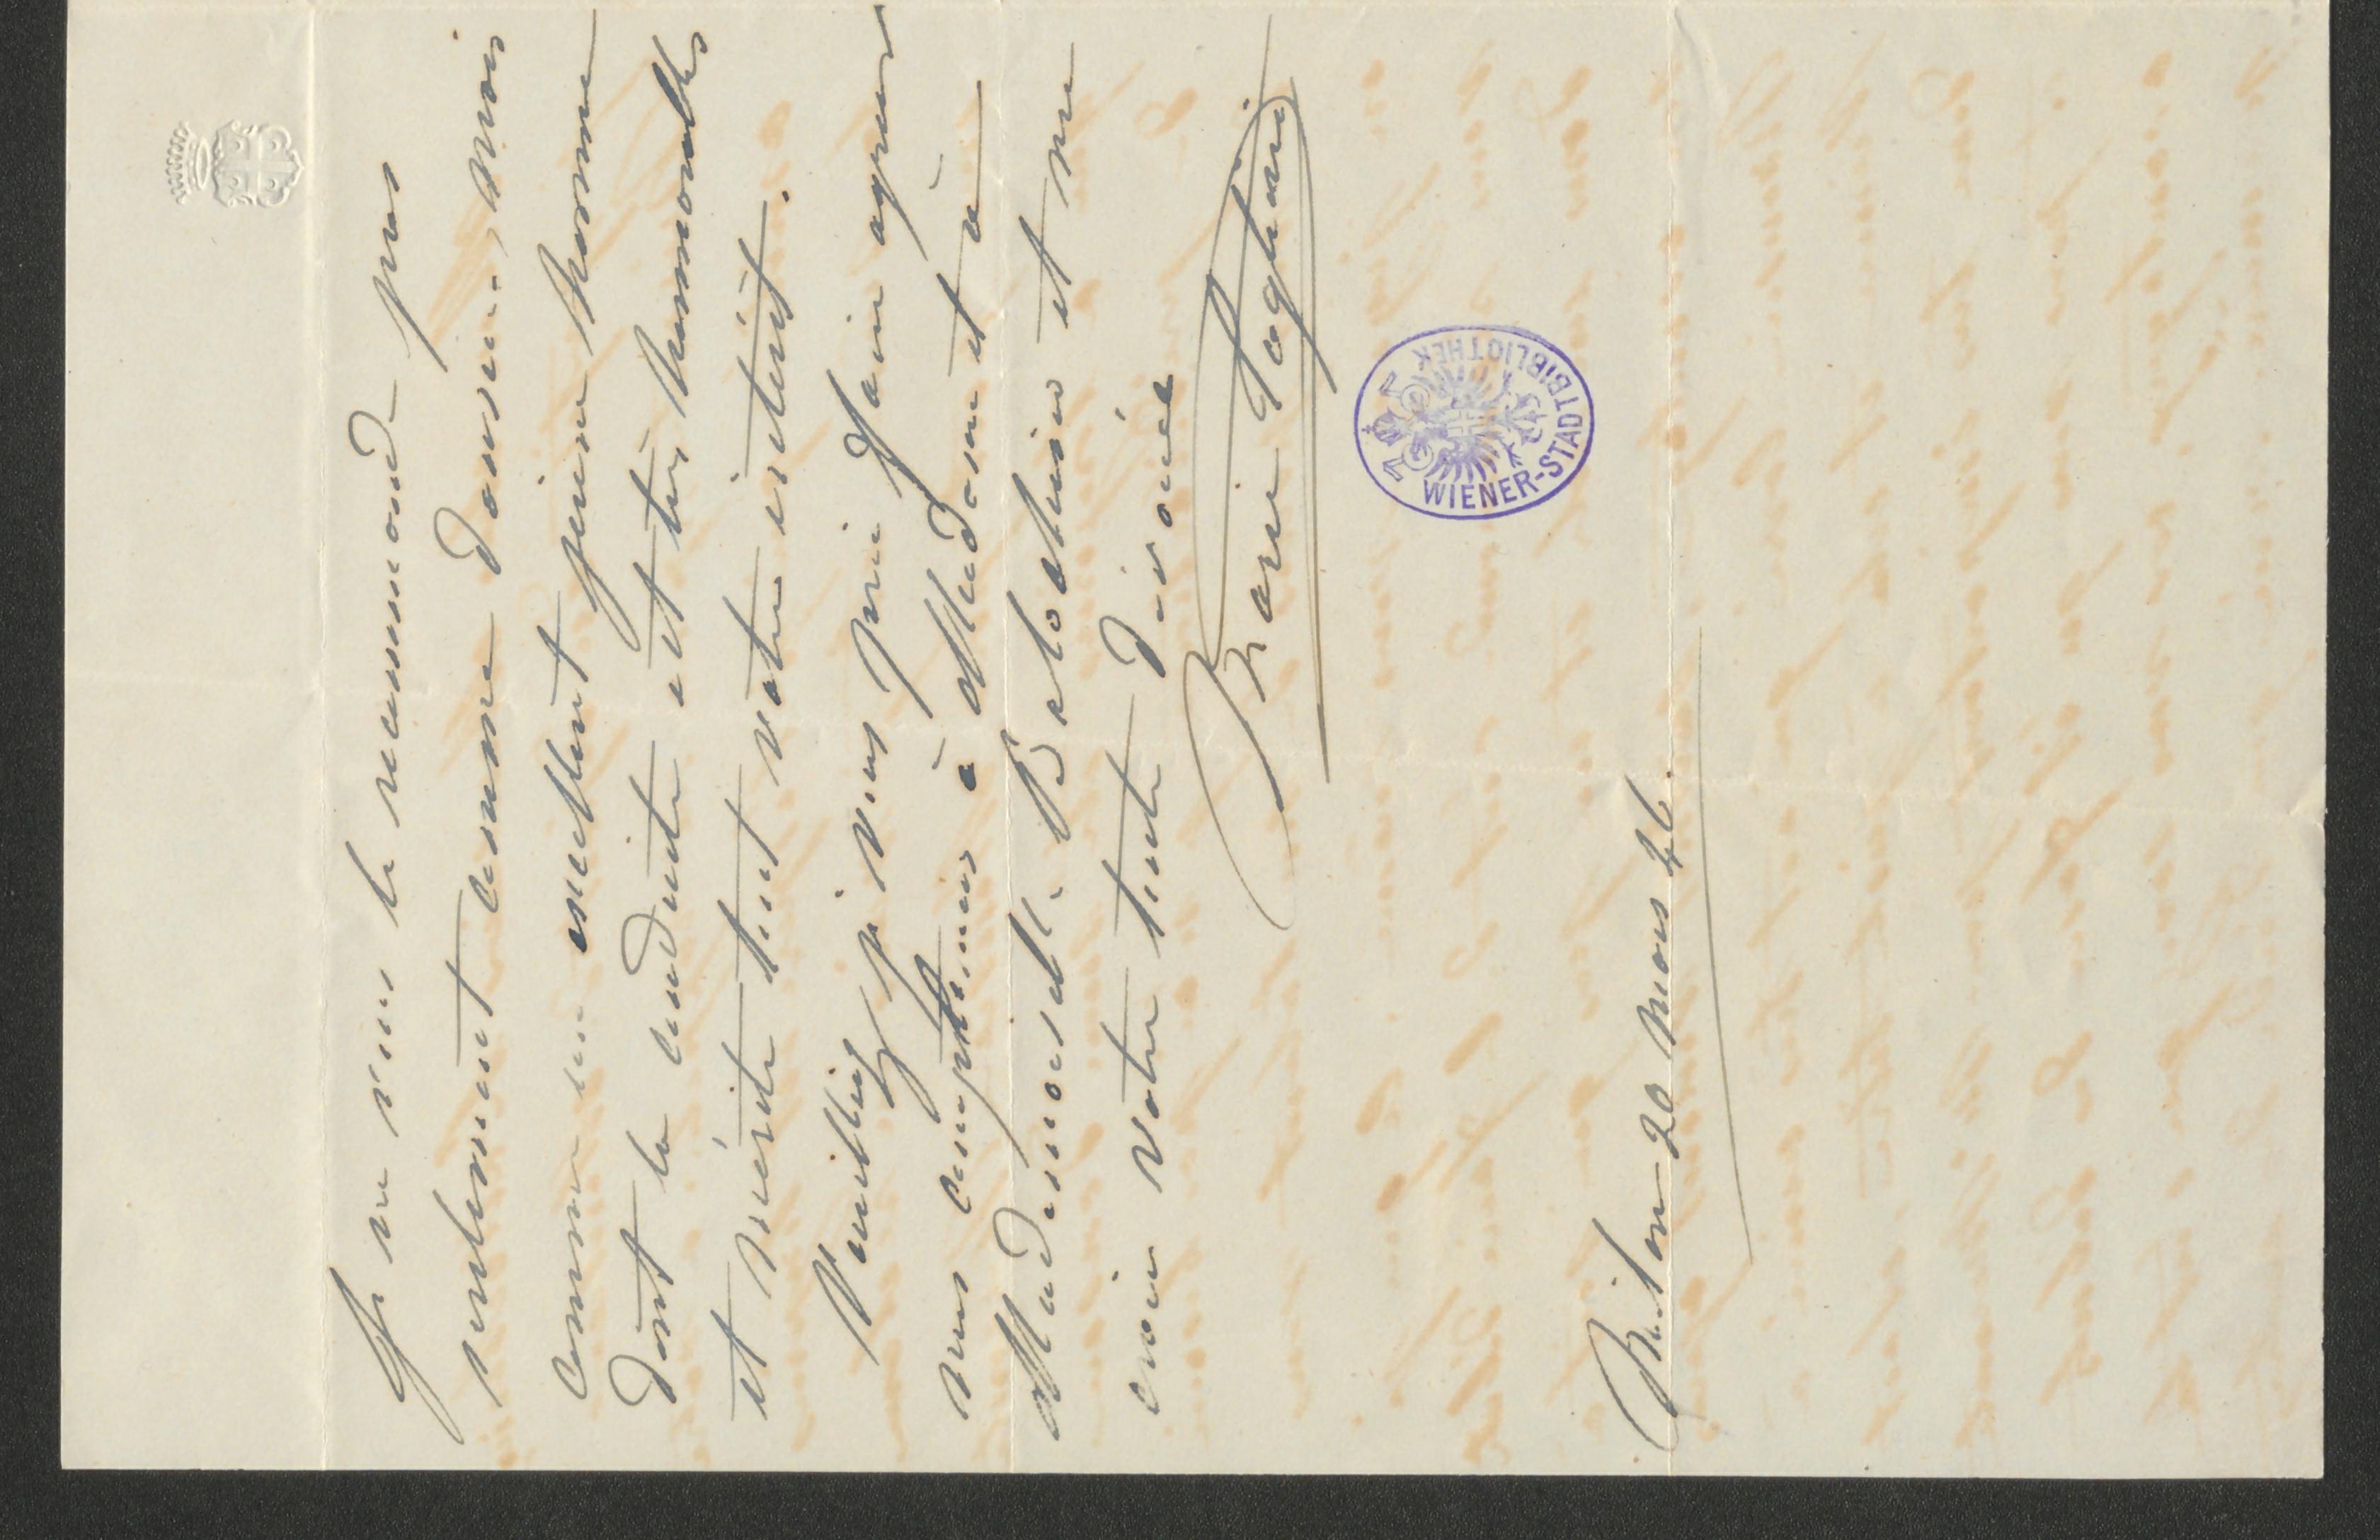 Je ne vous le recommande pas
seulement comme danseur, mais
comme un excellent jeune homme
dont la conduite est très honorable
et mérite tout votre intérêt.
Veuillez je vous prie faire agréer
mes complimens à Madame et a
Mademoiselle et me
croire votre toute dévouée
Marie Taglioni
20 Mars 46.
WIENER-STADTBIBLIOTHEK